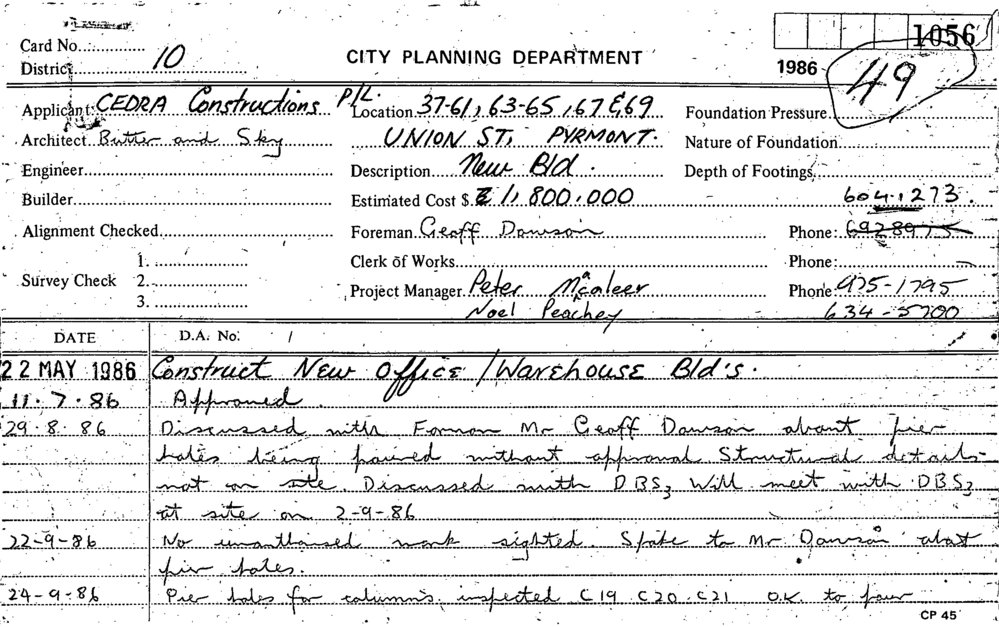 1056
Card No.
District 10
CITY PLANNING DEPARTMENT
1986
49
Applicant: CEDRA Constructions P/L.
Location 37-61, 63-65, 67 & 69
Foundation Pressure
Architect Butter and Sky
UNION ST, PYRMONT.
Nature of Foundation
Engineer
Description New Bld.
Depth of Footings
Builder
Estimated Cost $ 1,800,000
604.1273.
Alignment Checked
Foreman Geoff Dawson
Phone: 6928975
1.
Clerk of Works
Phone:
Survey Check 2.
Project Manager Peter McAleer
Phone 475-1795
3.
Noel Peachey
634-5700
DATE
D.A. No. /
22 MAY 1986 Construct New Office/Warehouse Bld's.
11.7.86 Approved.
29.8.86 Discussed with Forman Mr Geoff Dawson about pier
holes being poured without approval Structural details
not on site. Discussed with DBS3 Will meet with DBS3
at site on 2-9-86
22-9-86 No unauthorised work sighted. Spoke to Mr Dawson about
pier holes.
24-9-86 Pier holes for columns inspected C19 C20 C21 O.K. to pour
CP 45